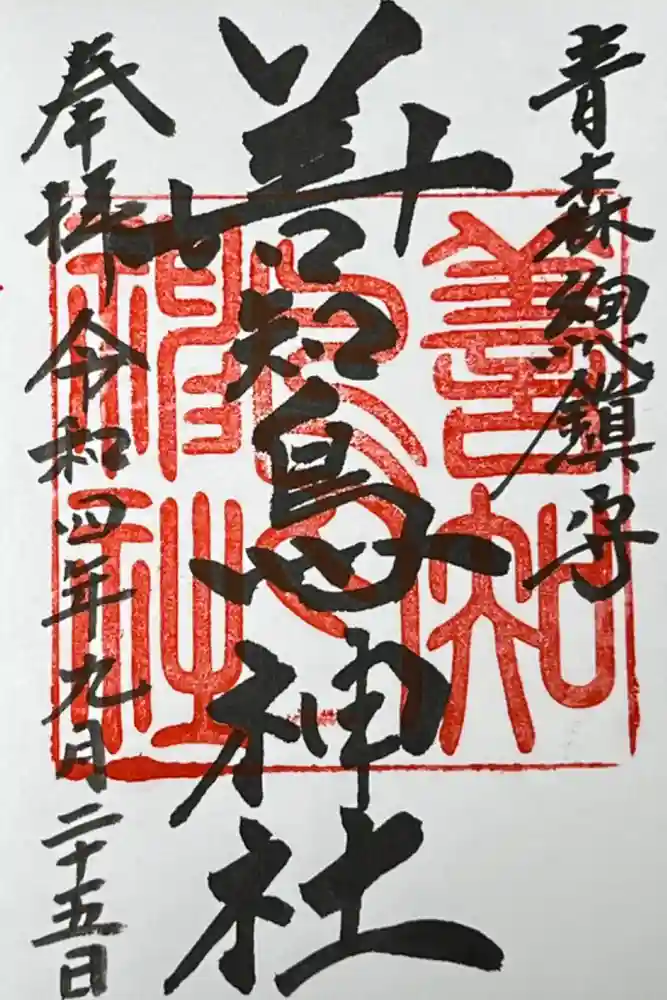 青森総鎮守
善知鳥神社
奉拝 令和四年九月二十五日
善知鳥神社